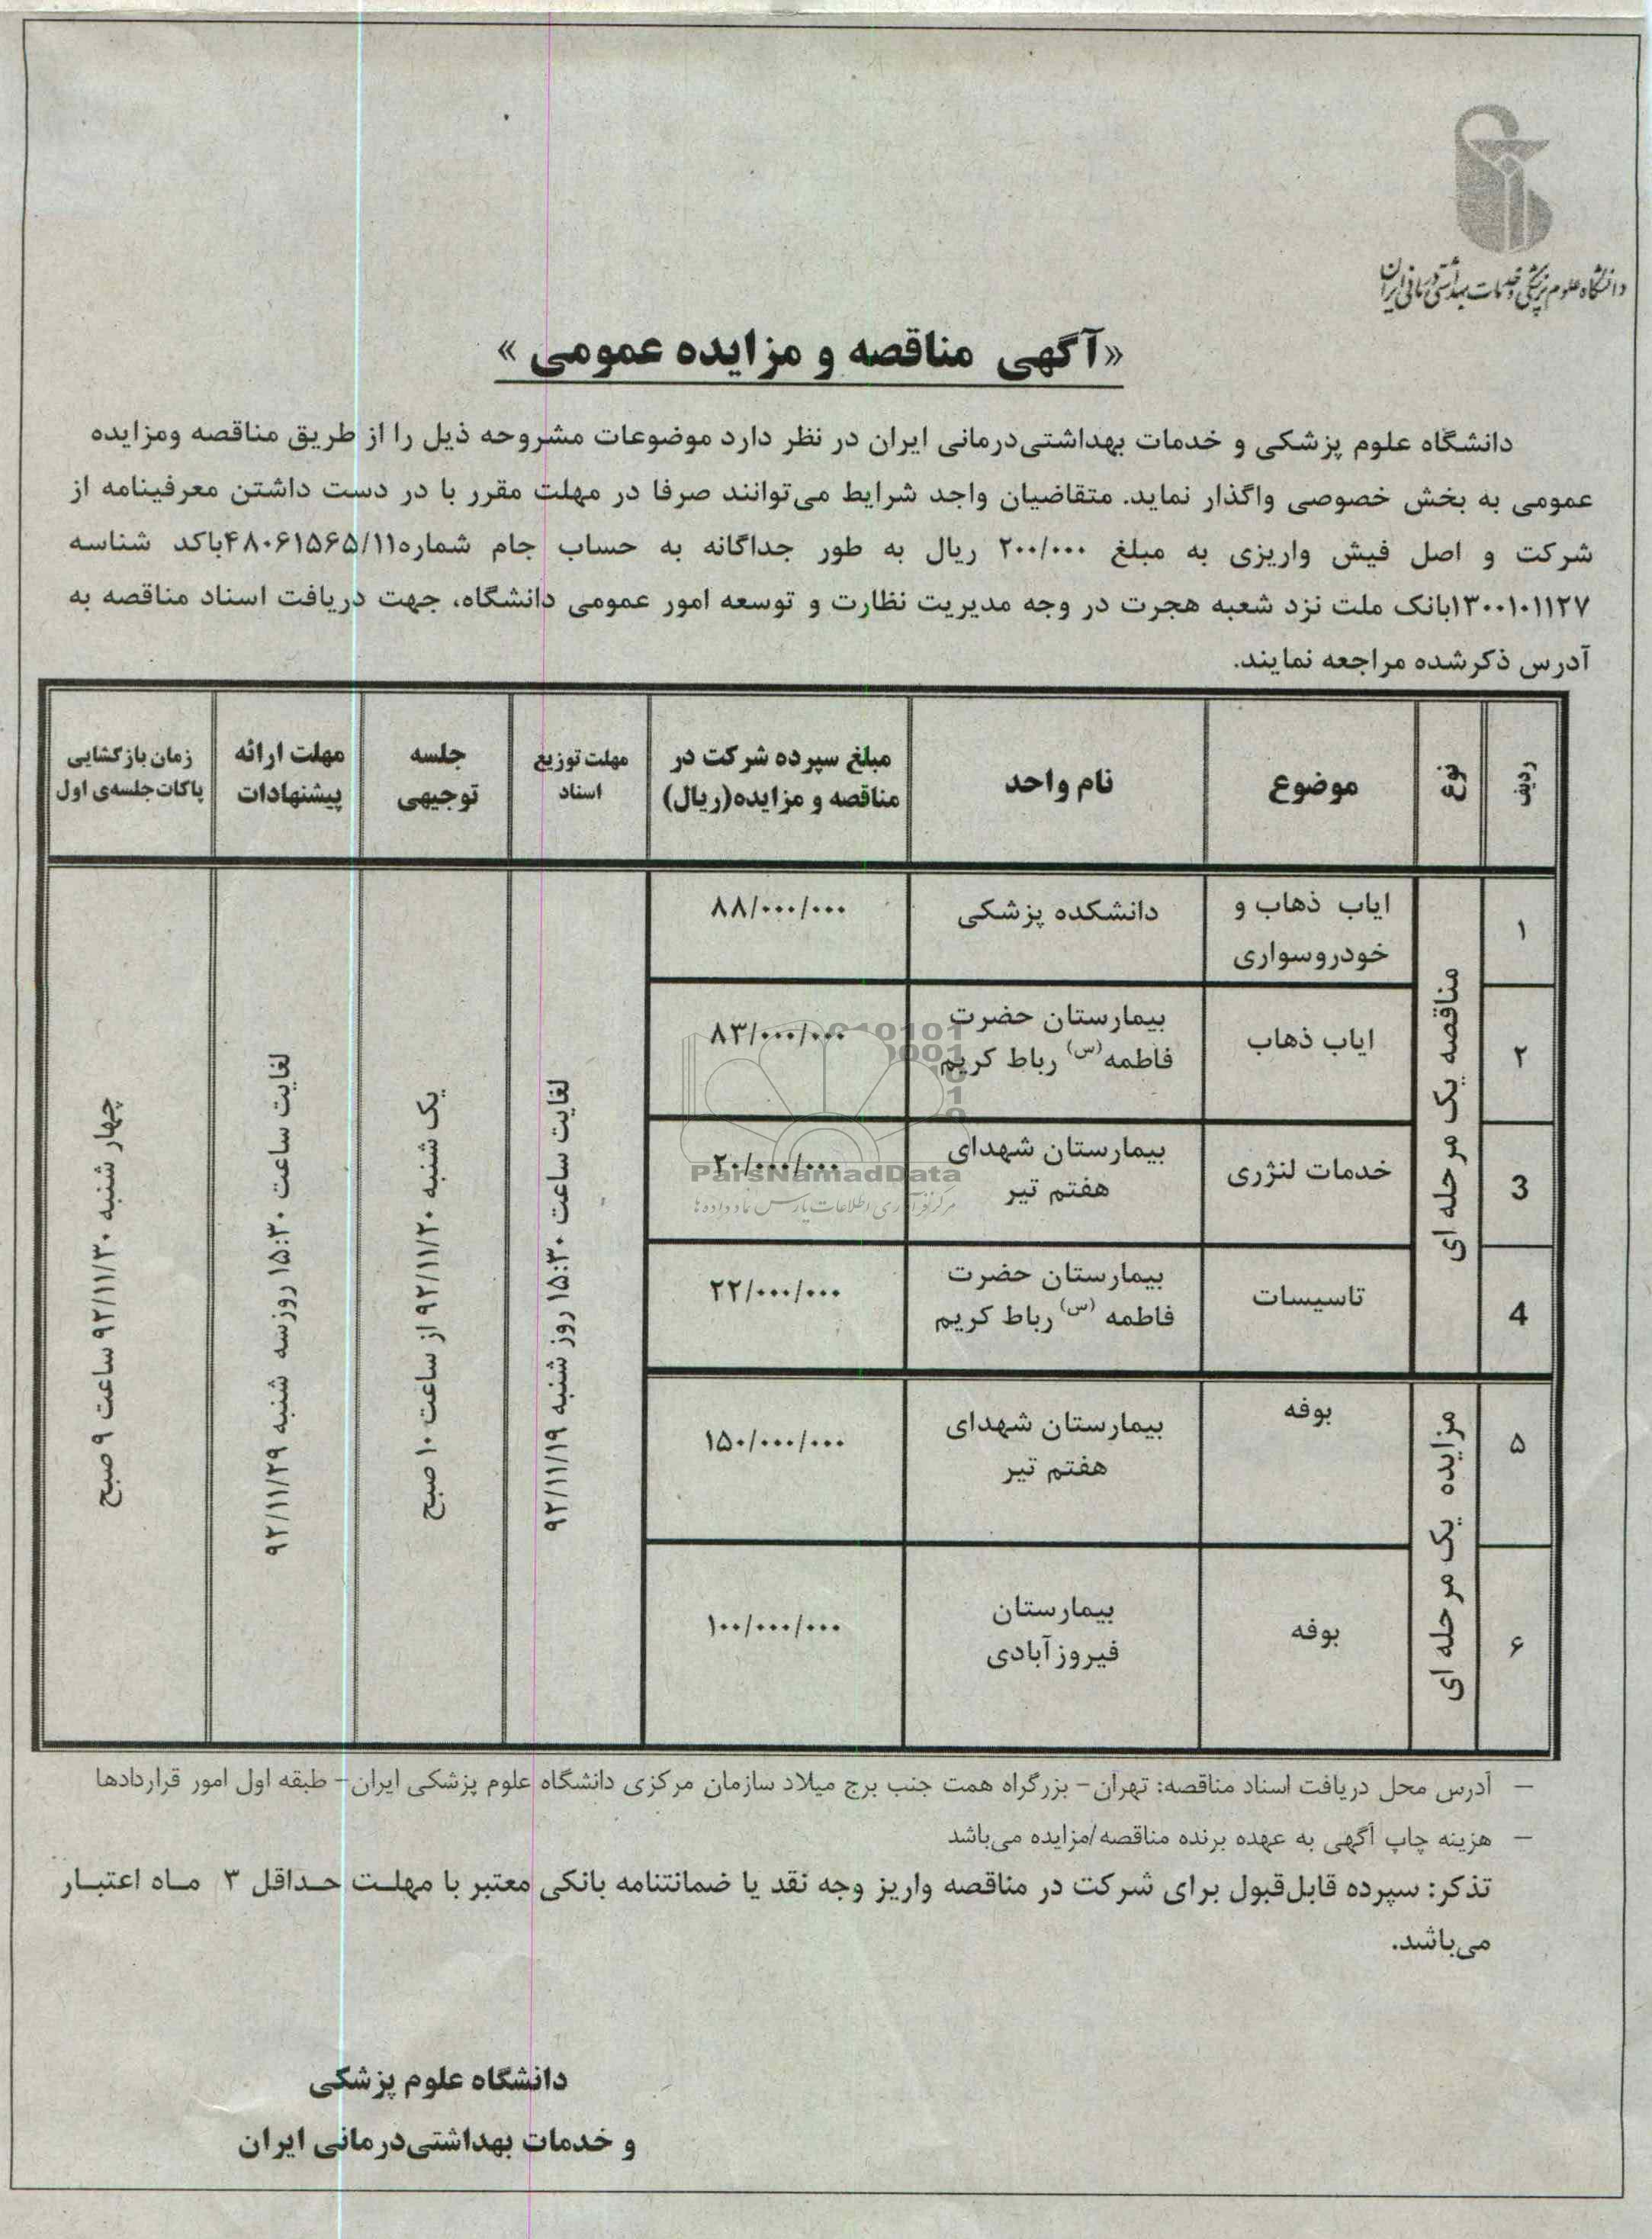 دانشگاه علوم پزشکی و خدمات بهداشتی درمانی ایران
«آگهی مناقصه و مزایده عمومی »
دانشگاه علوم پزشکی و خدمات بهداشتی‌درمانی ایران در نظر دارد موضوعات مشروحه ذیل را از طریق مناقصه ومزایده
عمومی به بخش خصوصی واگذار نماید. متقاضیان واجد شرایط می‌توانند صرفا در مهلت مقرر با در دست داشتن معرفینامه از
شرکت و اصل فیش واریزی به مبلغ ۲۰۰/۰۰۰ ریال به طور جداگانه به حساب جام شماره۴۸۰۶۱۵۶۵/۱۱باکد شناسه
۱۳۰۰۱۰۱۱۲۷بانک ملت نزد شعبه هجرت در وجه مدیریت نظارت و توسعه امور عمومی دانشگاه، جهت دریافت اسناد مناقصه به
آدرس ذکرشده مراجعه نمایند.
ردیف
نوع
موضوع
نام واحد
مبلغ سپرده شرکت در
مناقصه و مزایده(ریال)
مهلت توزیع
اسناد
جلسه
توجیهی
مهلت ارائه
پیشنهادات
زمان بازگشایی
پاکات جلسه‌ی اول
۱
مناقصه یک مرحله ای
ایاب ذهاب و
خودروسواری
دانشکده پزشکی
۸۸/۰۰۰/۰۰۰
لغایت ساعت ۱۵:۳۰ روز شنبه ۹۲/۱۱/۱۹
یک شنبه ۹۲/۱۱/۲۰ از ساعت ۱۰ صبح
لغایت ساعت ۱۵:۳۰ روزسه شنبه ۹۲/۱۱/۲۹
چهار شنبه ۹۲/۱۱/۳۰ ساعت ۹ صبح
۲
ایاب ذهاب
بیمارستان حضرت
فاطمه(س) رباط کریم
۸۳/۰۰۰/۰۰۰
3
خدمات لنژری
بیمارستان شهدای
هفتم تیر
۲۰/۰۰۰/۰۰۰
4
تاسیسات
بیمارستان حضرت
فاطمه (س) رباط کریم
۲۲/۰۰۰/۰۰۰
۵
مزایده یک مرحله ای
بوفه
بیمارستان شهدای
هفتم تیر
۱۵۰/۰۰۰/۰۰۰
۶
بوفه
بیمارستان
فیروزآبادی
۱۰۰/۰۰۰/۰۰۰
ParsNamadData
مرکز فرآوری اطلاعات پارس نماد داده ها
– آدرس محل دریافت اسناد مناقصه: تهران- بزرگراه همت جنب برج میلاد سازمان مرکزی دانشگاه علوم پزشکی ایران- طبقه اول امور قراردادها
– هزینه چاپ آگهی به عهده برنده مناقصه/مزایده می‌باشد
تذکر: سپرده قابل‌قبول برای شرکت در مناقصه واریز وجه نقد یا ضمانتنامه بانکی معتبر با مهلت حداقل ۳ ماه اعتبار
می‌باشد.
دانشگاه علوم پزشکی
و خدمات بهداشتی‌درمانی ایران